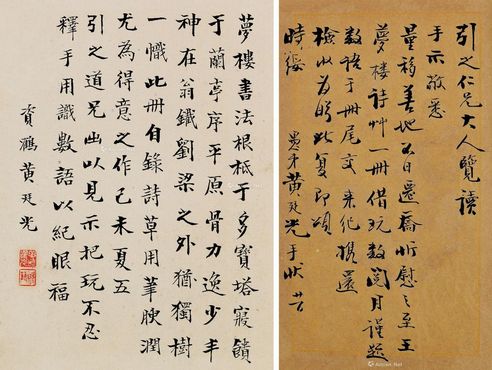 引之仁兄大人覽讀
手示敬悉
量移善地不日遷喬忻慰之至王
夢楼詩艸一冊借玩數閱月謹題
数語于冊尾交来伻携還
檢收為盼此复即頌
時綏 愚弟黄廷光手狀 廿
夢樓書法根柢于多寶塔寢饋
于蘭亭序平原骨力逸少丰
神在翁鐵劉梁之外猶獨樹
一幟此冊自錄詩草用筆腴潤
尤為得意之作己未夏五
引之道兄出以見示把玩不忍
釋手用識數語以紀眼福
黃廷光